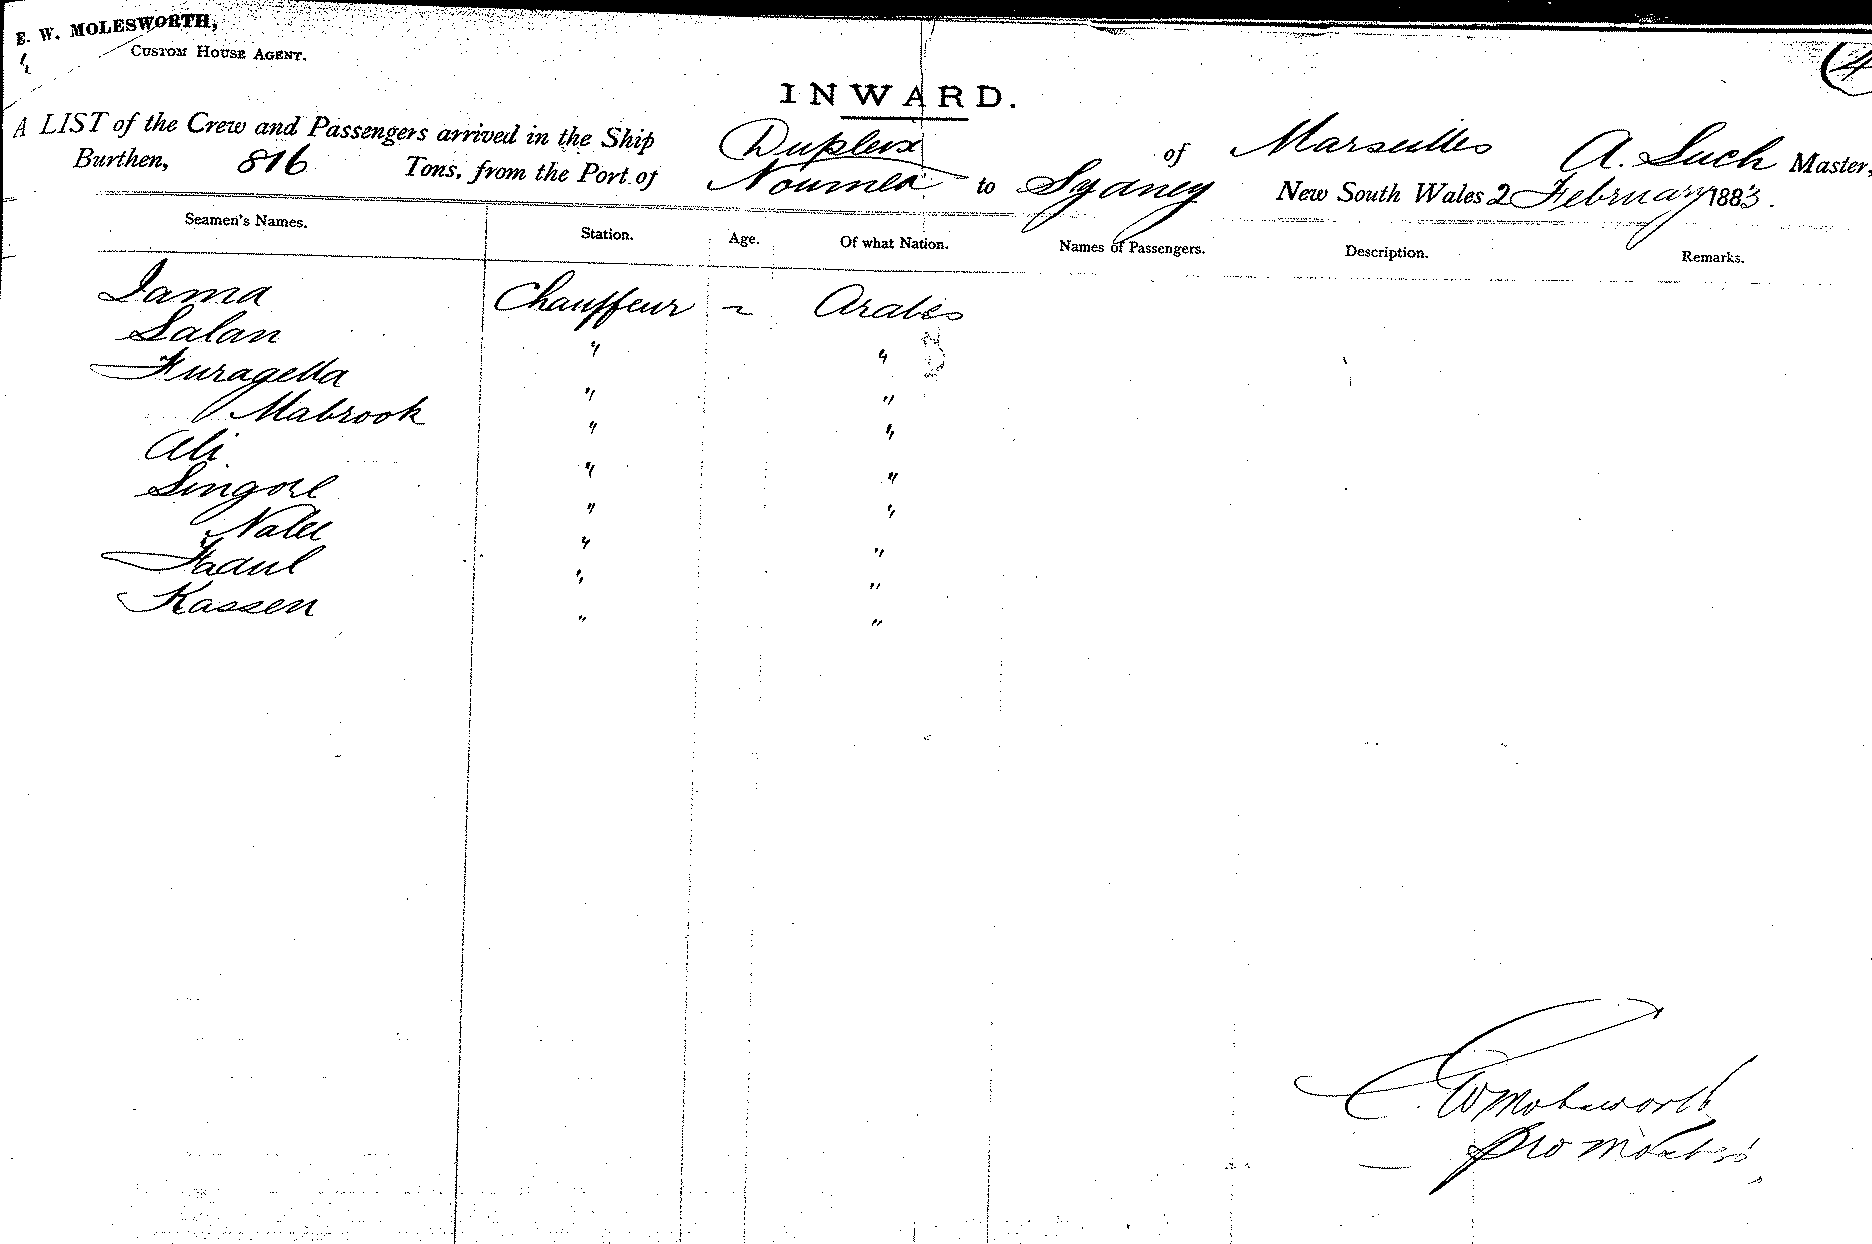 E. W. MOLESWORTH,
CUSTOM HOUSE AGENT.
4
INWARD.
A LIST of the Crew and Passengers arrived in the Ship Dupleix of Marseilles A. Such Master,
Burthen, 816 Tons, from the Port of Noumea to Sydney New South Wales 2 February 1883.
Seamen's Names. Station. Age. Of what Nation. Names of Passengers. Description. Remarks.
Jama Chauffeur ~ Arabes
Salan " "
" "
Mabrook " "
Ali " "
" "
" "
Fadul " "
Kassen " "
E. W Molesworth
pro Master